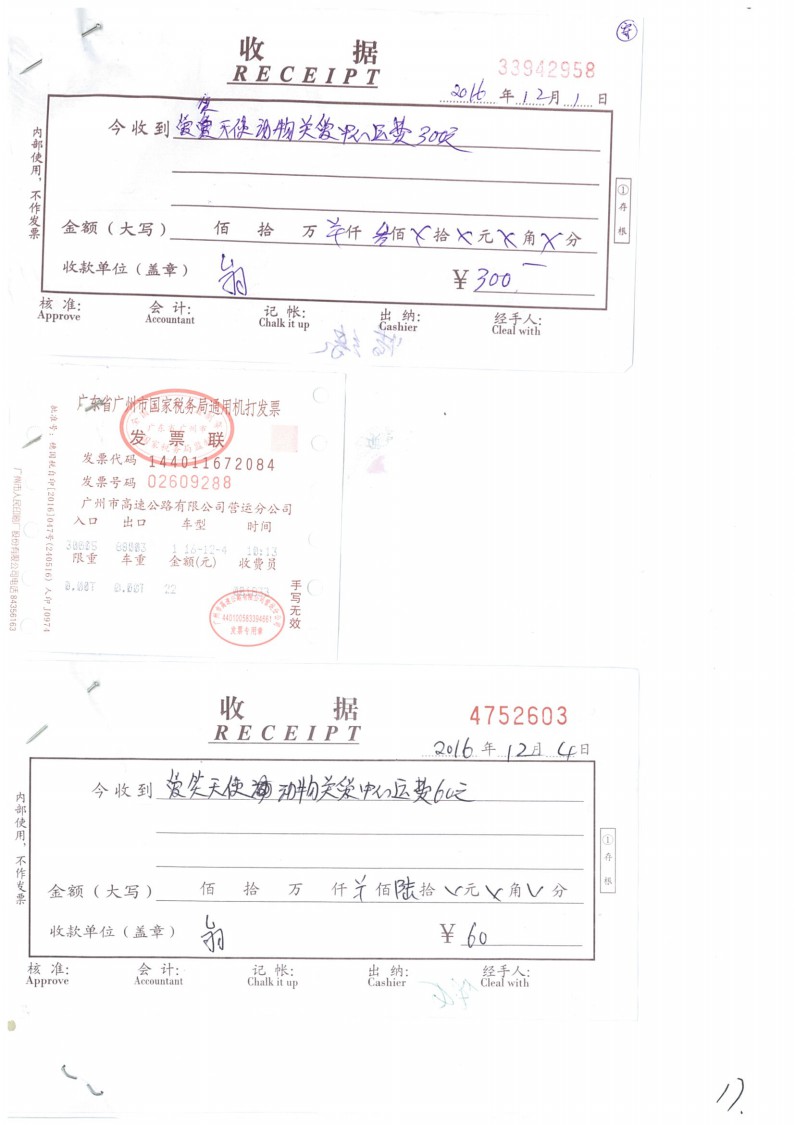 收 据
RECEIPT
33942958
2016 年 12 月 1 日
今收到 爱笑天使动物关爱中心运费300元
内部使用，不作发票
①存根
金额（大写） 佰 拾 万 仟 叁佰 X 拾 X 元 X 角 X 分
收款单位（盖章） ¥ 300
核 准: 会 计: 记 帐: 出 纳: 经手人:
Approve Accountant Chalk it up Cashier Cleal with
广东省广州市国家税务局通用机打发票
发 票 联
发票代码 144011672084
发票号码 02609288
广州市高速公路有限公司营运分公司
入口 出口 车型 时间
1 16-12-4 10:13
限重 车重 金额(元) 收费员
0.00T 0.00T 22
手写无效
440100583394681
发票专用章
收 据
RECEIPT
4752603
2016 年 12 月 4 日
今收到 爱笑天使动物关爱中心运费60元
内部使用，不作发票
①存根
金额（大写） 佰 拾 万 仟 佰 陆 拾 元 角 分
收款单位（盖章） ¥ 60
核 准: 会 计: 记 帐: 出 纳: 经手人:
Approve Accountant Chalk it up Cashier Cleal with
17.